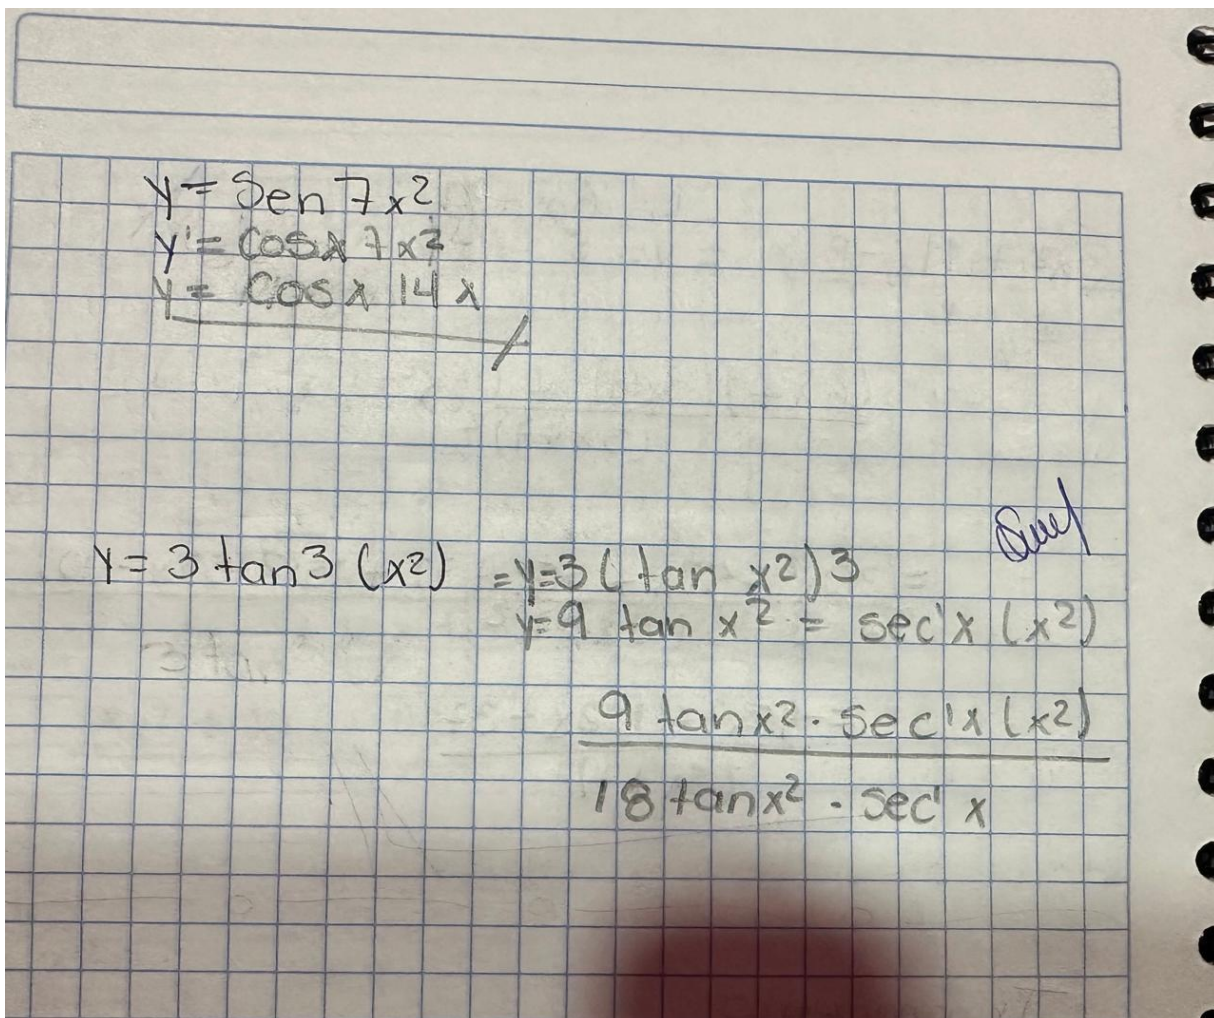 y = Sen 7x²
y' = cosx 7x²
y = Cosx 14x
y = 3 tan3 (x²) = y=3(tan x²)3
y=9 tan x² = sec'x (x²)
9 tanx² · sec'x (x²)
18 tanx² · sec' x